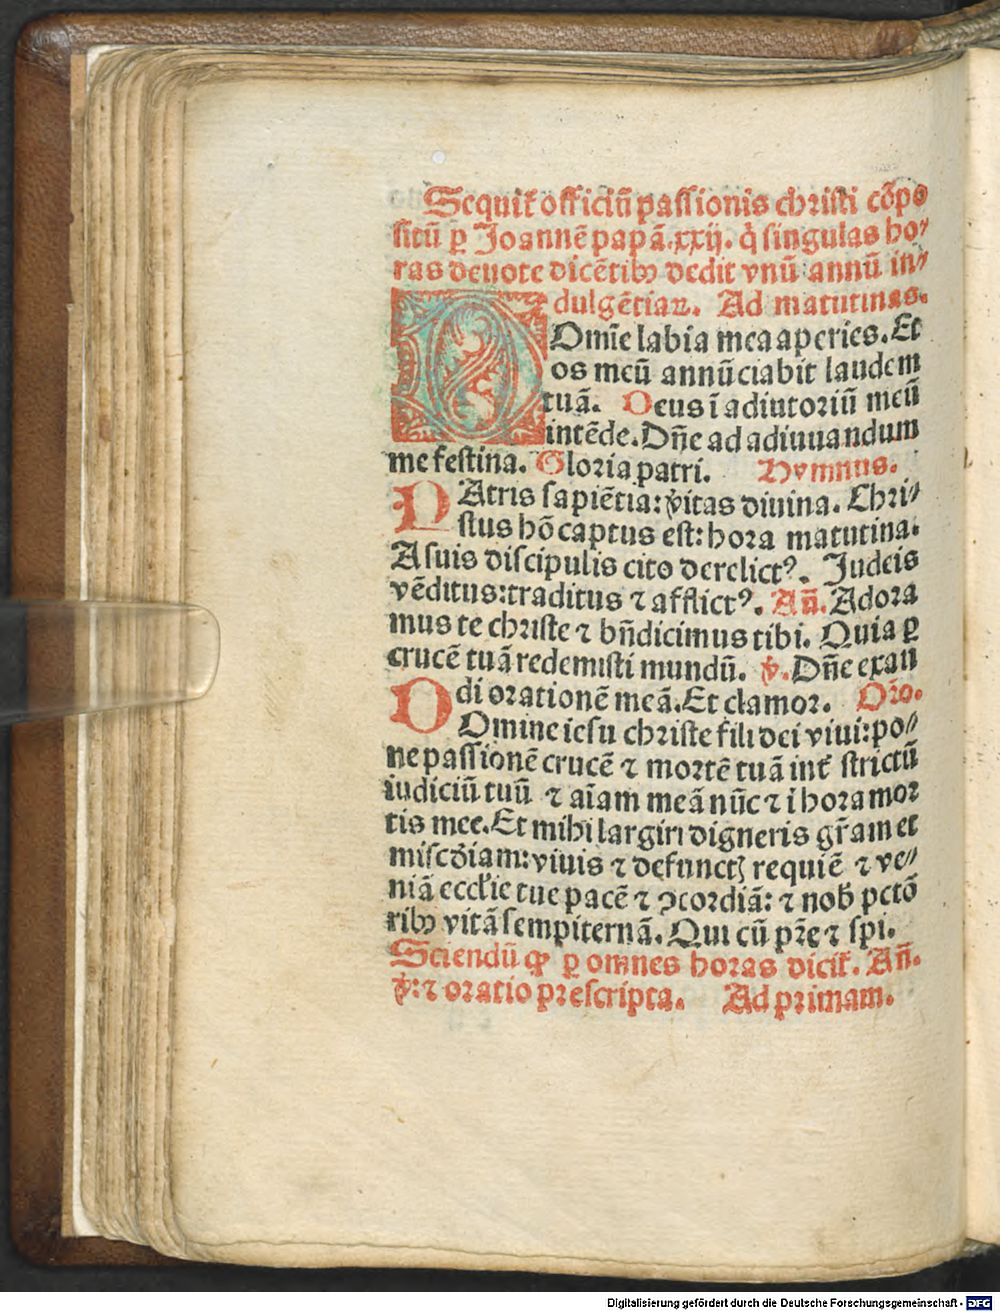 Sequit̃ officiũ passionis christi cõpo
situ̅ ꝑ Joannẽ papã.xxij. q̃ singulas ho⸗
ras deuote dicẽtibꝰ dedit vnũ annũ in⸗
dulgẽtiaꝝ. Ad matutinas.
DOmĩe labia mea aperies. Et
os meũ annũciabit laudem
tuã. Deus ĩ adiutoriũ meũ
intẽde. Dñe ad adiuuandum
me festina. Gloria patri. Hymnus.
PAtris sapiẽtia: v̾itas diuina. Chri⸗
stus hõ captus est: hora matutina.
A suis discipulis cito derelictꝰ. Judeis
vẽditus: traditus ⁊ afflictꝰ. Añ. Adora
mus te christe ⁊ bñdicimus tibi. Quia ꝑ
crucẽ tuã redemisti mundũ. ℣. Dñe exau
di orationẽ meã. Et clamor. Oro.
DOmine iesu christe fili dei viui: po⸗
ne passionẽ crucẽ ⁊ mortẽ tuã int̃ strictũ
iudiciũ tuũ ⁊ aĩam meã nũc ⁊ ĩ hora mor
tis mee. Et mihi largiri digneris gr̃am et
mĩscd̾iam: viuis ⁊ defunctꝭ requiẽ ⁊ ve⸗
niã eccl̾ie tue pacẽ ⁊ ꝯcordiã: ⁊ nob̾ pctõ
ribꝰ vitã sempiternã. Qui cũ pr̃e ⁊ spi.
Sciendũ ꝙ ꝑ omnes horas dicit̃. Añ.
℣: ⁊ oratio prescripta. Ad primam.
Digitalisierung gefördert durch die Deutsche Forschungsgemeinschaft - DFG